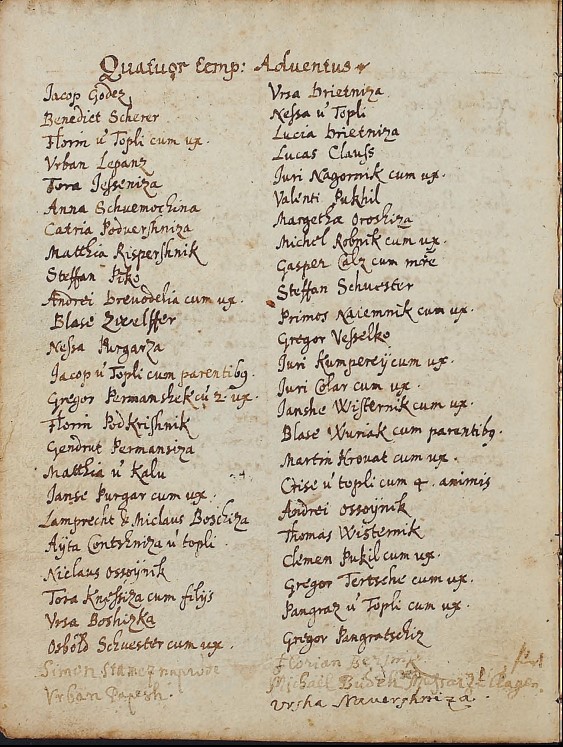 Quatuor temp: Adventus
Jacop Godez
Benedict Scherer
Florin ú Topli cum ux.
Vrban Lepanz
Tora Jesseniza
Anna Schuemochina
Catria Poduershniza
Matthia Rispershnik
Steffan Piko
Andrei breuodelia cum ux.
Blase Zwelffer
Nessa Purgarza
Jacop ú Topli cum parentibq.
Gregor Permanshek cū 2 ux.
Florin Podkrishnik
Gendrut Permansiza
Matthia ú Kalu
Janse Purgar cum ux.
Lamprecht & Niclaus Boschiza
Aÿta ú topli.
Niclaus Ossoÿnik
Tora Knessiza cum filijs
Vrsa Boshizka
Osbold Schuester cum ux.
Simon
Vrban Papesh.
Vrsa brietniza
Nessa ú Topli
Lucia brietniza
Lucas Clauss
Juri Nagornik cum ux.
Valenti Pukhil
Margetha Oroshiza
Michel Robnik cum ux.
Gasper Calz cum mr̄e
Steffan Schuester
Primos Naiemnik cum ux.
Gregor Vesselko
Juri Kumpereÿ cum ux.
Juri Colar cum ux.
Janshe Wisternik cum ux.
Blase Wuniak cum parentibq.
Martin Krouat cum ux.
Crise ú topli cum 4. animis
Andrei Ossoÿnik
Thomas Wisternik
Clemen Pukil cum ux.
Gregor Tertsche cum ux.
Pangraz ú Topli cum ux.
Gregor Pangratschiz
Florian
Michael
Vrsha Nauershniza.